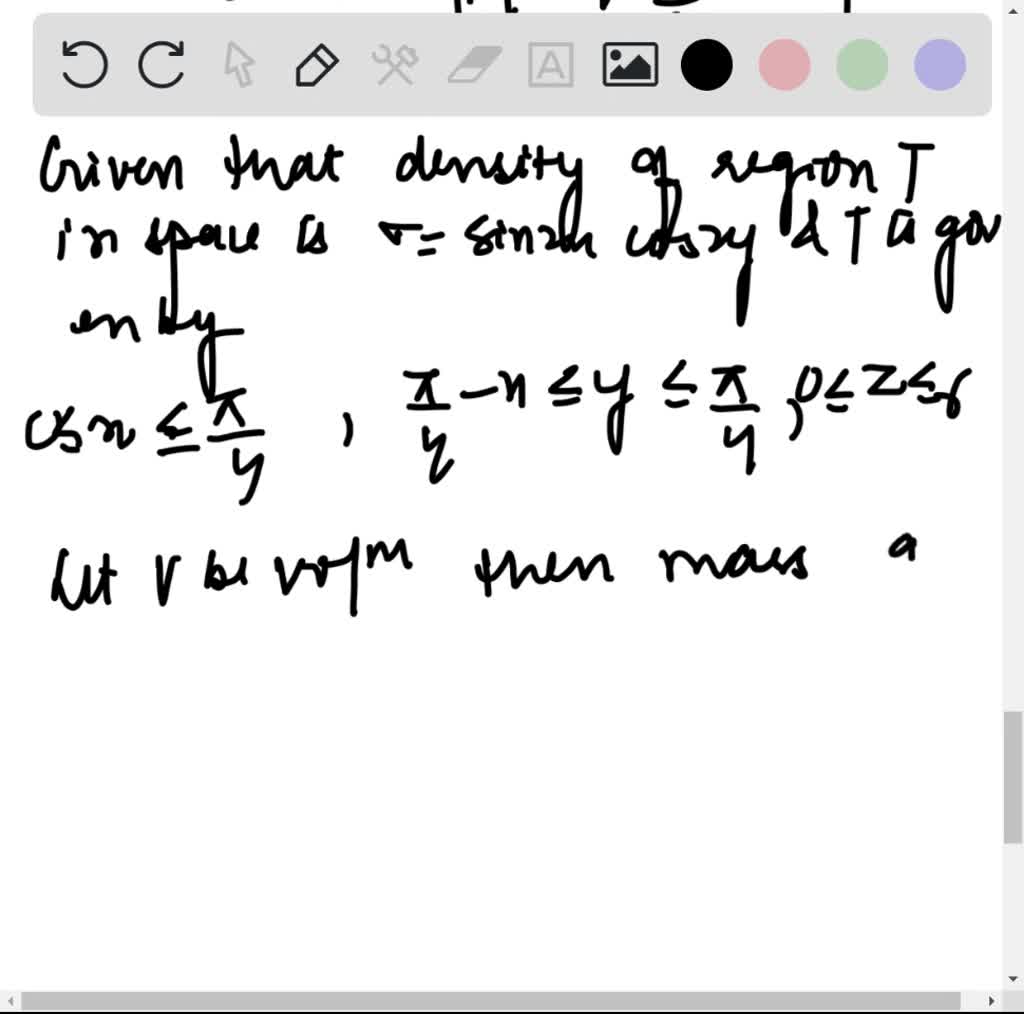 Given that density of region T
in space is σ = sin2x cos2y & T is giv
en by
0≤x ≤ π/4 , π/4 - x ≤ y ≤ π/4 , 0≤ z ≤ 6
Let V be vol^m then mass o